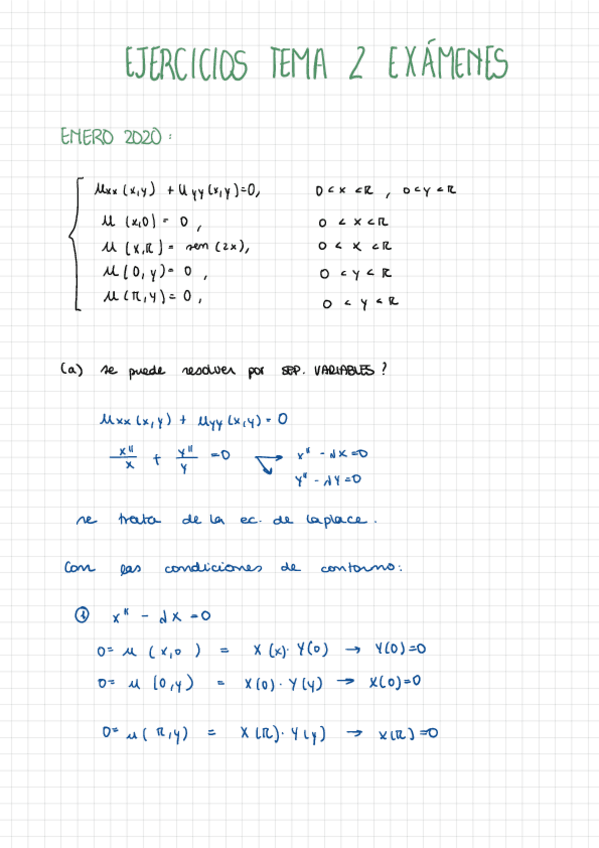 EJERCICIOS TEMA 2 EXÁMENES
ENERO 2020:
uxx (x,y) + uyy (x,y)=0, 0<x<π, 0<y<π
u (x,0) = 0, 0<x<π
u (x,π) = sen (2x), 0<x<π
u (0,y) = 0, 0<y<π
u (π,y) = 0, 0<y<π
(a) se puede resolver por SEP. VARIABLES?
uxx (x,y) + uyy (x,y) = 0
x''/x + y''/y = 0 → x'' - λx = 0
y'' - λy = 0
se trata de la ec. de laplace.
Con las condiciones de contorno:
① x'' - λx = 0
0 = u (x,0) = X(x)· Y(0) → Y(0)=0
0 = u (0,y) = X(0)· Y(y) → X(0)=0
0 = u (π,y) = X(π)· Y(y) → X(π)=0